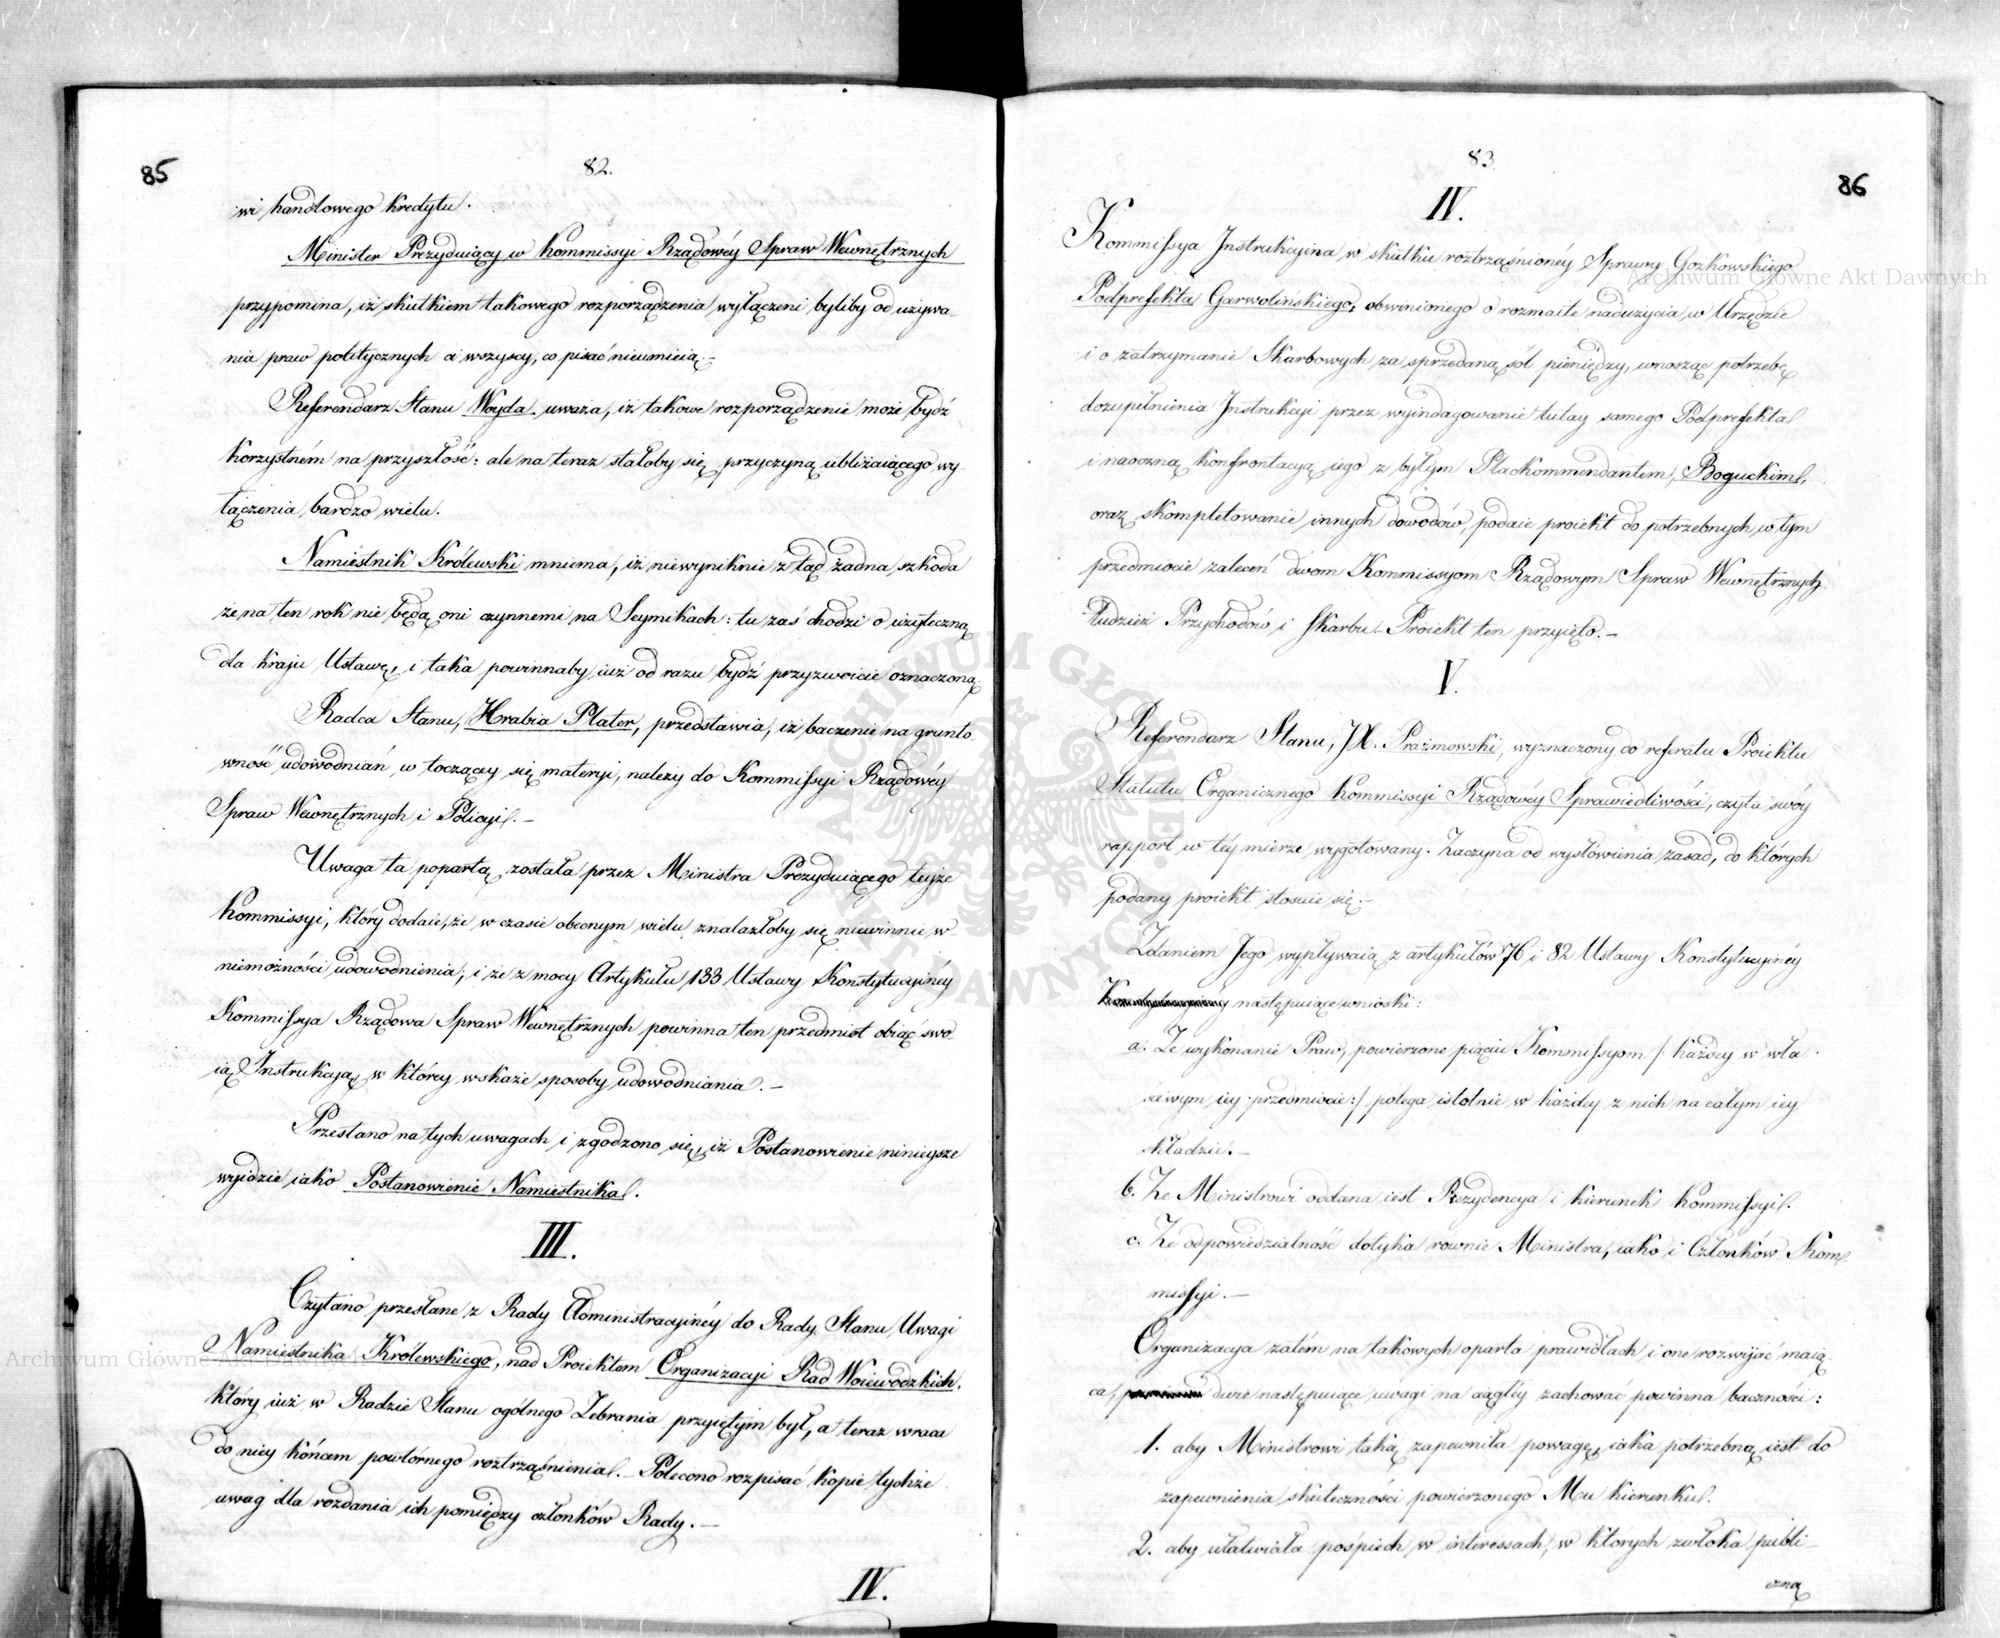 85
82.
wi handlowego kredytu.
Minister Prezyduiący w Kommissyi Rządowéy Spraw Wewnętrznych
przypomina, iż skutkiem takowego rozporządzenia wyłączeni byliby od używa-
nia praw politycznych ci wszyscy, co pisać nieumieią.-
Referendarz Stanu Woyda uważa, iż takowe rozporządzenie może bydź
korzystném na przyszłość: ale na teraz stałoby się przyczyną ubliżaiącego wy
łączenia bardzo wielu.
Namiestnik Królewski mniema, iż niewyniknie z tąd żadna szkoda
że na ten rok nie będą oni czynnemi na Seymikach: tu zaś chodzi o użyteczną
dla kraju Ustawę, i taka powinnaby iuż od razu bydź przyzwoicie oznaczoną.
Radca Stanu, Hrabia Plater, przedstawia, iż baczenie na grunto-
wność udowodniań w toczącey się materyi, należy do Kommissyi Rządowéy
Spraw Wewnętrznych i Policyi.-
Uwaga ta popartą została przez Ministra Prezyduiącego teyże
Kommissyi, który dodaie, że w czasie obecnym wielu znalazłoby się niewinnie w-
niemożności udowodnienia, i że z mocy Artykułu 133 Ustawy Konstytucyinéy
Kommissya Rządowa Spraw Wewnętrznych powinna ten przedmiot obiąć swo-
ią Instrukcyą, w którey wskaże sposoby udowodniania.-
Przestano na tych uwagach i zgodzono się, iż Postanowienie ninieysze
wyidzie iako Postanowienie Namiestnika.
III.
Czytano przesłane z Rady Administracyinéy do Rady Stanu Uwagi
Namiestnika Królewskiego, nad Proiektem Organizacyi Rad Woiewodzkich,
który iuż w Radzie Stanu ogólnego Zebrania przyiętym był, a teraz wraca
do niey końcem powtórnego roztrząśnienia.- Polecono rozpisać kopie tychże
uwag dla rozdania ich pomiędzy członków Rady.-
IV.
86
83
IV.
Kommissya Instrukcyina w skutku roztrząśnionéy Sprawy Gozkowskiego
Podprefekta Garwolińskiego, obwinionego o rozmaite nadużycia w Urzędzie
i o zatrzymanie Skarbowych za sprzedaną sól pieniędzy, wnosząc potrzebę
dozupełnienia Instrukcyi przez wyindagowanie tutay samego Podprefekta
i naoczną konfrontacyą iego z byłym Plackommendantem, Boguckim,
oraz skompletowanie innych dowodów, podaie proiekt do potrzebnych w tym
przedmiocie zaleceń dwom Kommissyom Rządowym Spraw Wewnętrznych
tudzież Przychodów i Skarbu.- Proiekt ten przyięto.-
V.
Referendarz Stanu, JX. Prażmowski, wyznaczony do referatu Proiektu
Statutu Organicznego Kommissyi Rządowéy Sprawiedliwości, czyta swóy
rapport w téy mierze wygotowany. Zaczyna od wysłówienia zasad, do których
podany proiekt stosuie się.-
Zdaniem Jego wypływaią z artykułów 76 i 82 Ustawy Konstytucyinéy
następuiące wnioski:
a. Że wykonanie Praw, powierzone pięciu Kommissyom /: każdey w wła
ściwym iey przedmiocie:/ polega istotnie w każdey z nich na całym iey
składzie.-
b. Że Ministrowi oddana iest Prezydencya i kierunek Kommissyi.
c. Że odpowiedzialność dotyka rownie Ministra, iako i Członków Kom
missyi.-
Organizacya zatém na takowych oparta prawidłach i one rozwijać maią-
ca, dwie następuiące uwagi na ciągłey zachować powinna baczności:
1. aby Ministrowi taką zapewniła powagę, iaka potrzebną iest do
zapewnienia skuteczności powierzonego Mu kierunku.
2. aby ułatwiała pośpiech w interessach, w których zwłoka publi-
czną
Archiwum Główne Akt Dawnych
Archiwum Główne Akt Dawnych
ARCHIWUM GŁÓWNE AKT DAWNYCH